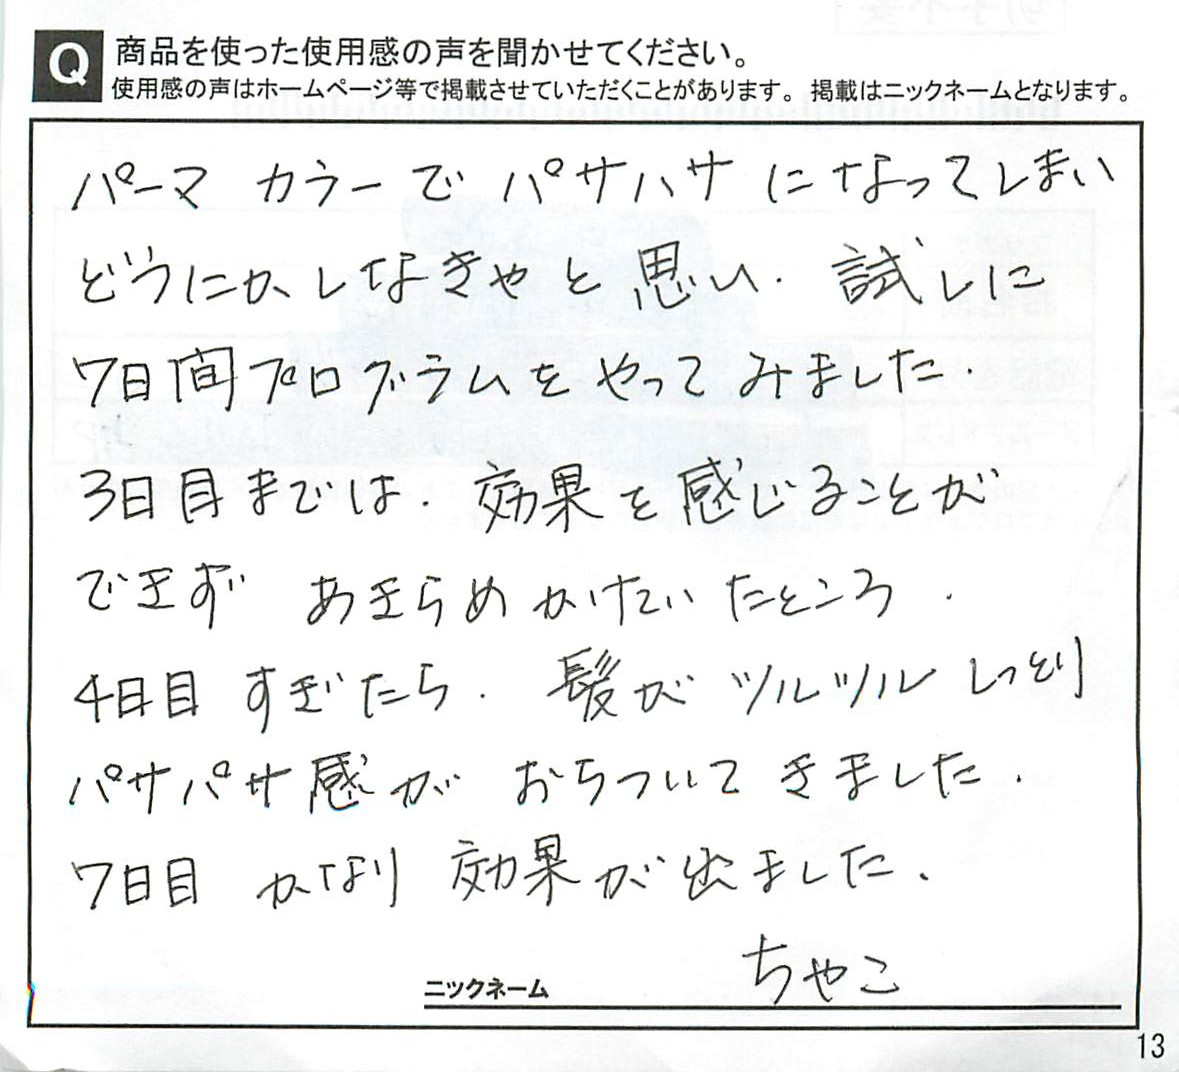 Q 商品を使った使用感の声を聞かせてください。
使用感の声はホームページ等で掲載させていただくことがあります。掲載はニックネームとなります。
パーマ カラーで パサハサ になってしまい
どうにかしなきゃと思い、試しに
7日間プログラムをやってみました。
3日目までは、効果を感じることが
できず あきらめかけていたところ、
4日目 すぎたら、髪が ツルツル しっとり
パサパサ感が おちついてきました。
7日目 かなり 効果が出ました。
ちゃこ
ニックネーム
13